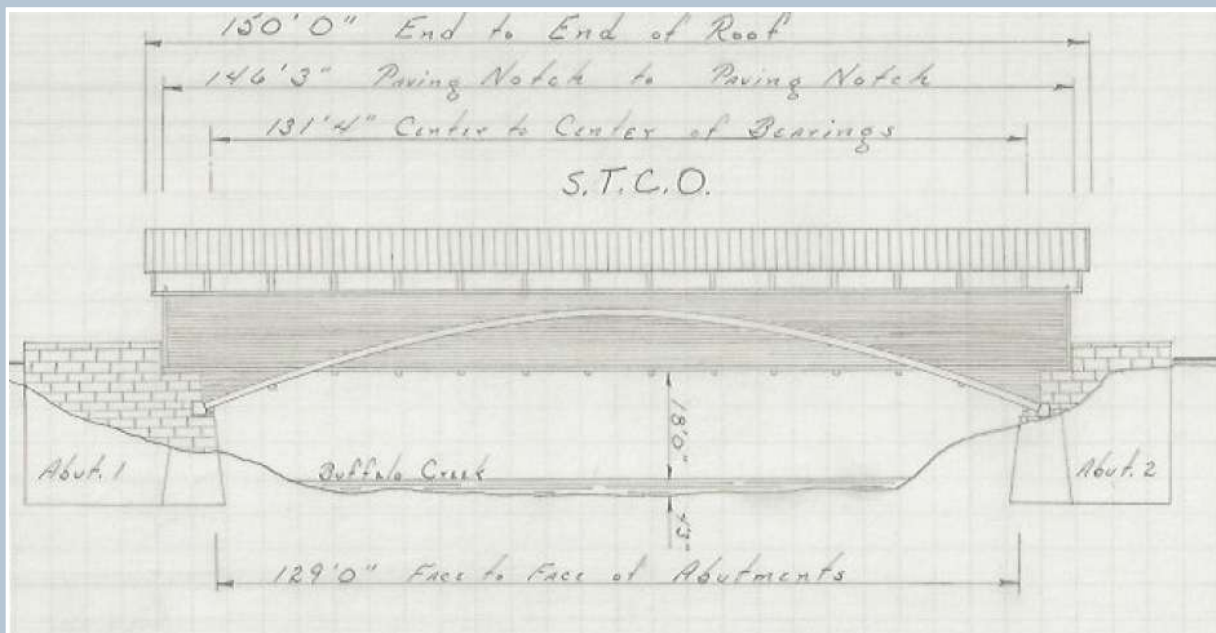 150'0" End to End of Roof
146'3" Paving Notch to Paving Notch
131'4" Center to Center of Bearings
S.T.C.O.
18'0"
Abut. 1
Buffalo Creek
Abut. 2
129'0" Face to Face of Abutments